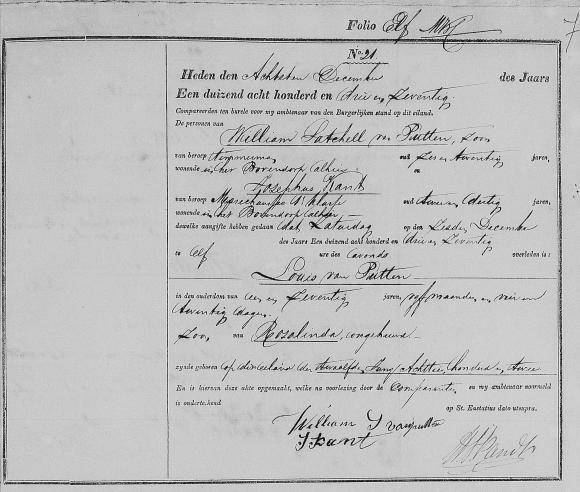 Folio Elf
No. 21.
Heden den Achtsten December des Jaars
Een duizend acht honderd en drie en Zeventig.
Compareerden ten burele voor my ambtenaar van den Burgerlijken stand op dit eiland.
De personen van
William Satchell van Putten, Zoon
van beroep oud Zes en twentig jaren,
wonende in het Bovendorp alhier en
Josephus Kant
van beroep Marechaussee 1e klasse oud twee en dertig jaren,
wonende in het Bovendorp alhier
dewelke aangifte hebben gedaan dat Zaturdag op den Zesden December
des Jaars Een duizend acht honderd en drie en Zeventig
te Elf ure des avonds overleden is:
Louis van Putten
in den ouderdom van een en Zeventig jaren, vyf maanden en vier en
twentig dagen
Zoon van Rosalinda, ongehuwd
zynde geboren op dit eiland den twaalfden Juny Achttien honderd en twee
En is hiervan dite akte opgemaakt, welke na voorlezing door de Comparanten en my ambtenaar voormeld
is onderteekend
op St. Eustatius dato utsupra.
William S van putten
J Kant